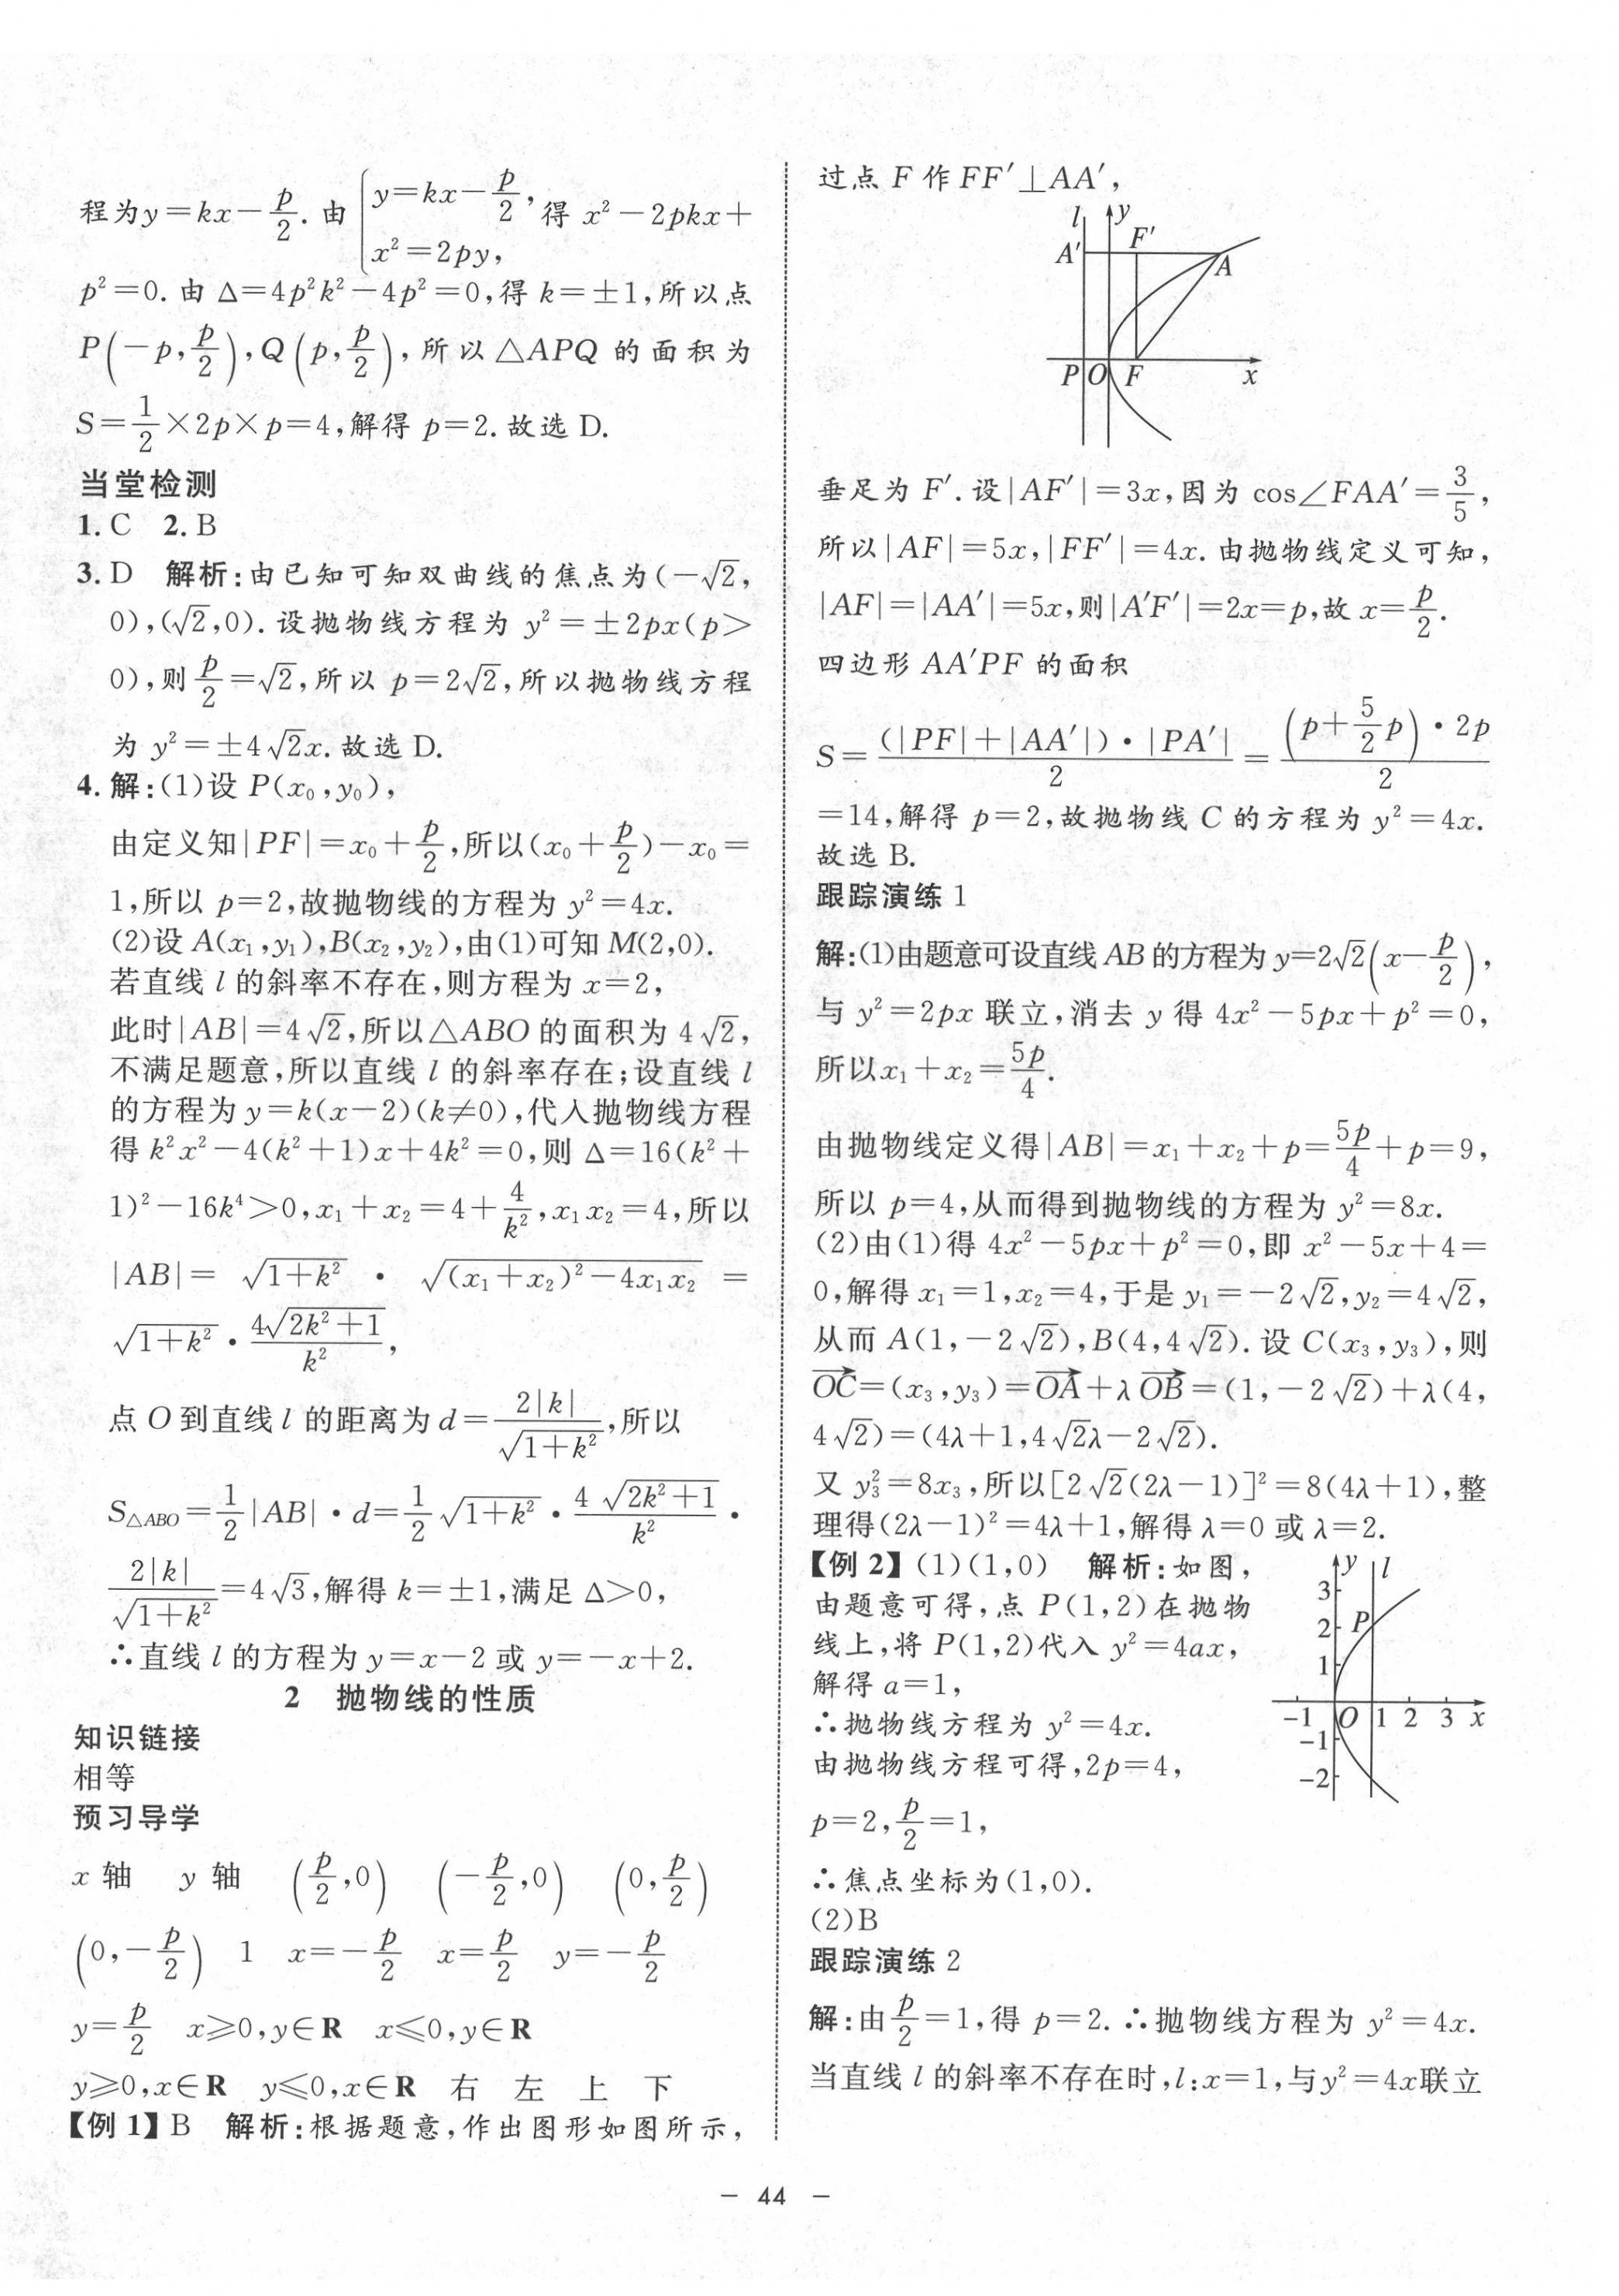 程为y=kx-p/2.由{y=kx-p/2, x²=2py,得 x²-2pkx+
p²=0.由 Δ=4p²k²-4p²=0,得 k=±1,所以点
P(-p,p/2),Q(p,p/2),所以△APQ 的面积为
S=1/2×2p×p=4,解得 p=2.故选 D.
当堂检测
1.C 2.B
3.D 解析:由已知可知双曲线的焦点为(-√2,
0),(√2,0).设抛物线方程为 y²=±2px(p>
0),则p/2=√2,所以 p=2√2,所以抛物线方程
为 y²=±4√2x.故选 D.
4.解:(1)设 P(x₀,y₀),
由定义知|PF|=x₀+p/2,所以(x₀+p/2)-x₀=
1,所以 p=2,故抛物线的方程为 y²=4x.
(2)设 A(x₁,y₁),B(x₂,y₂),由(1)可知 M(2,0).
若直线 l 的斜率不存在,则方程为 x=2,
此时|AB|=4√2,所以△ABO 的面积为 4√2,
不满足题意,所以直线 l 的斜率存在;设直线 l
的方程为 y=k(x-2)(k≠0),代入抛物线方程
得 k²x²-4(k²+1)x+4k²=0,则 Δ=16(k²+
1)²-16k⁴>0,x₁+x₂=4+4/k²,x₁x₂=4,所以
|AB|= √(1+k²) · √((x₁+x₂)²-4x₁x₂) =
√(1+k²)·4√(2k²+1)/k²,
点 O 到直线 l 的距离为 d=2|k|/√(1+k²),所以
S△ABO=1/2|AB|·d=1/2√(1+k²)·4√(2k²+1)/k²·
2|k|/√(1+k²)=4√3,解得 k=±1,满足 Δ>0,
∴直线 l 的方程为 y=x-2 或 y=-x+2.
2 抛物线的性质
知识链接
相等
预习导学
x 轴 y 轴 (p/2,0) (-p/2,0) (0,p/2)
(0,-p/2) 1 x=-p/2 x=p/2 y=-p/2
y=p/2 x≥0,y∈R x≤0,y∈R
y≥0,x∈R y≤0,x∈R 右 左 上 下
【例 1】B 解析:根据题意,作出图形如图所示,
过点 F 作 FF′⊥AA′,
l y
A′ F′ A
P O F x
垂足为 F′.设|AF′|=3x,因为 cos∠FAA′=3/5,
所以|AF|=5x,|FF′|=4x.由抛物线定义可知,
|AF|=|AA′|=5x,则|A′F′|=2x=p,故 x=p/2.
四边形 AA′PF 的面积
S=(|PF|+|AA′|)·|PA′|/2=(p+5/2p)·2p/2
=14,解得 p=2,故抛物线 C 的方程为 y²=4x.
故选 B.
跟踪演练 1
解:(1)由题意可设直线 AB 的方程为 y=2√2(x-p/2),
与 y²=2px 联立,消去 y 得 4x²-5px+p²=0,
所以x₁+x₂=5p/4.
由抛物线定义得|AB|=x₁+x₂+p=5p/4+p=9,
所以 p=4,从而得到抛物线的方程为 y²=8x.
(2)由(1)得 4x²-5px+p²=0,即 x²-5x+4=
0,解得 x₁=1,x₂=4,于是 y₁=-2√2,y₂=4√2,
从而 A(1,-2√2),B(4,4√2).设 C(x₃,y₃),则
OC→=(x₃,y₃)=OA→+λOB→=(1,-2√2)+λ(4,
4√2)=(4λ+1,4√2λ-2√2).
又 y₃²=8x₃,所以[2√2(2λ-1)]²=8(4λ+1),整
理得(2λ-1)²=4λ+1,解得 λ=0 或 λ=2.
【例 2】(1)(1,0) 解析:如图,
由题意可得,点 P(1,2)在抛物
线上,将 P(1,2)代入 y²=4ax,
解得 a=1,
∴抛物线方程为 y²=4x.
由抛物线方程可得,2p=4,
p=2,p/2=1,
∴焦点坐标为(1,0).
y l
3
2 P
1
-1 O 1 2 3 x
-1
-2
(2)B
跟踪演练 2
解:由p/2=1,得 p=2.∴抛物线方程为 y²=4x.
当直线 l 的斜率不存在时,l:x=1,与y²=4x联立
- 44 -